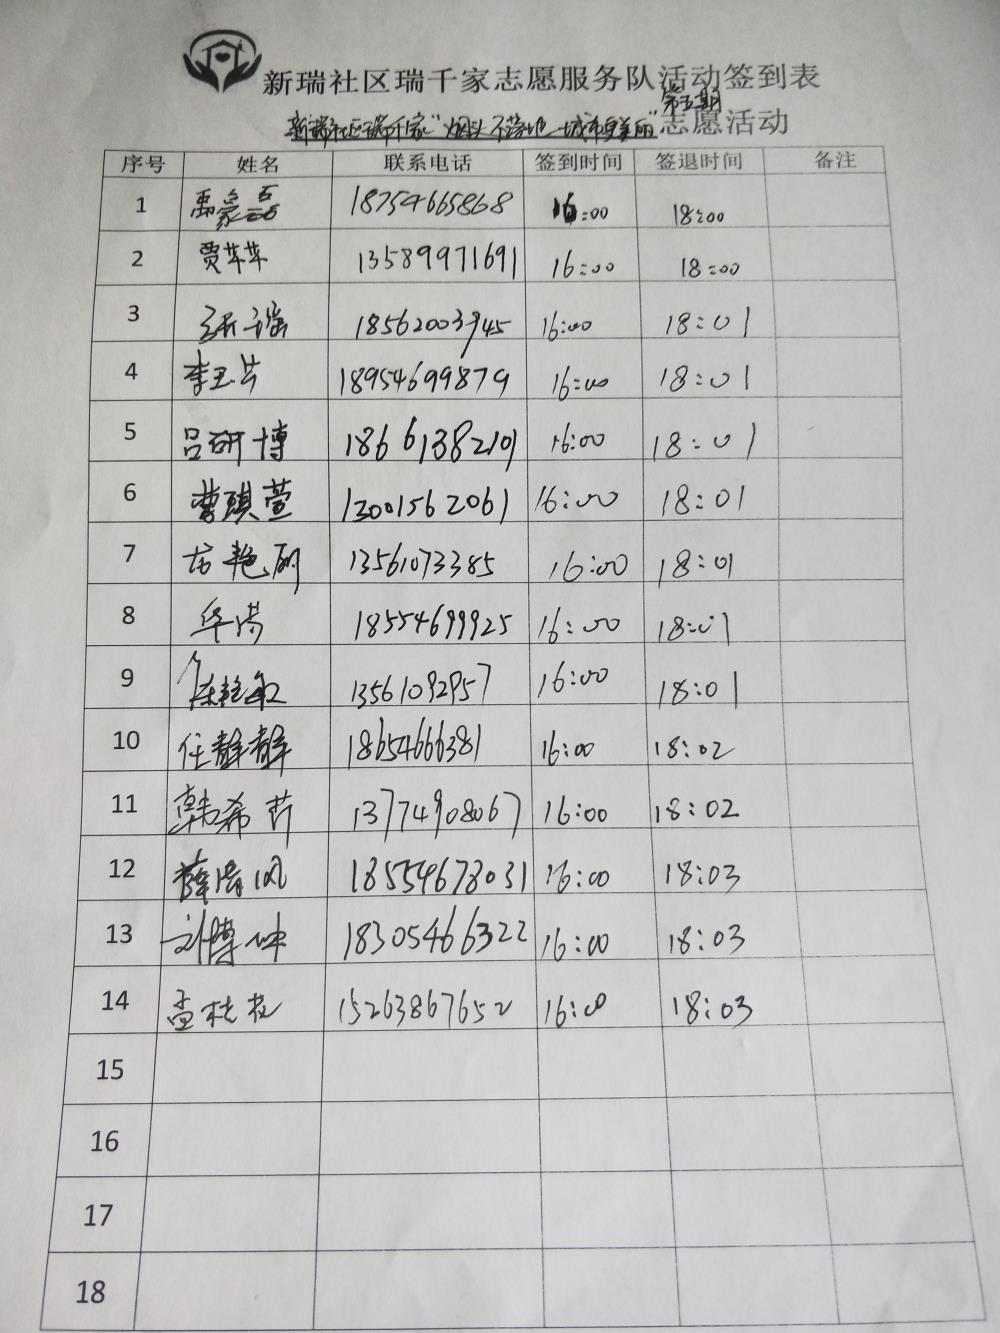 新瑞社区瑞千家志愿服务队活动签到表
第五期
新瑞社区瑞千家"烟头不落地 城市更美丽"志愿活动
序号 姓名 联系电话 签到时间 签退时间 备注
1 18754665868 16:00 18:00
2 贾苹苹 13589971691 16:00 18:00
3 18562003945 16:00 18:01
4 李玉芹 18954699879 16:00 18:01
5 吕研博 18661382101 16:00 18:01
6 曹琪萱 13001562061 16:00 18:01
7 13561073385 16:00 18:01
8 18554699925 16:00 18:01
9 13561092957 16:00 18:01
10 任静静 18654666381 16:00 18:02
11 韩希芹 13774908067 16:00 18:02
12 18554678031 16:00 18:03
13 刘博坤 18305466322 16:00 18:03
14 孟桂花 15263867652 16:00 18:03
15
16
17
18